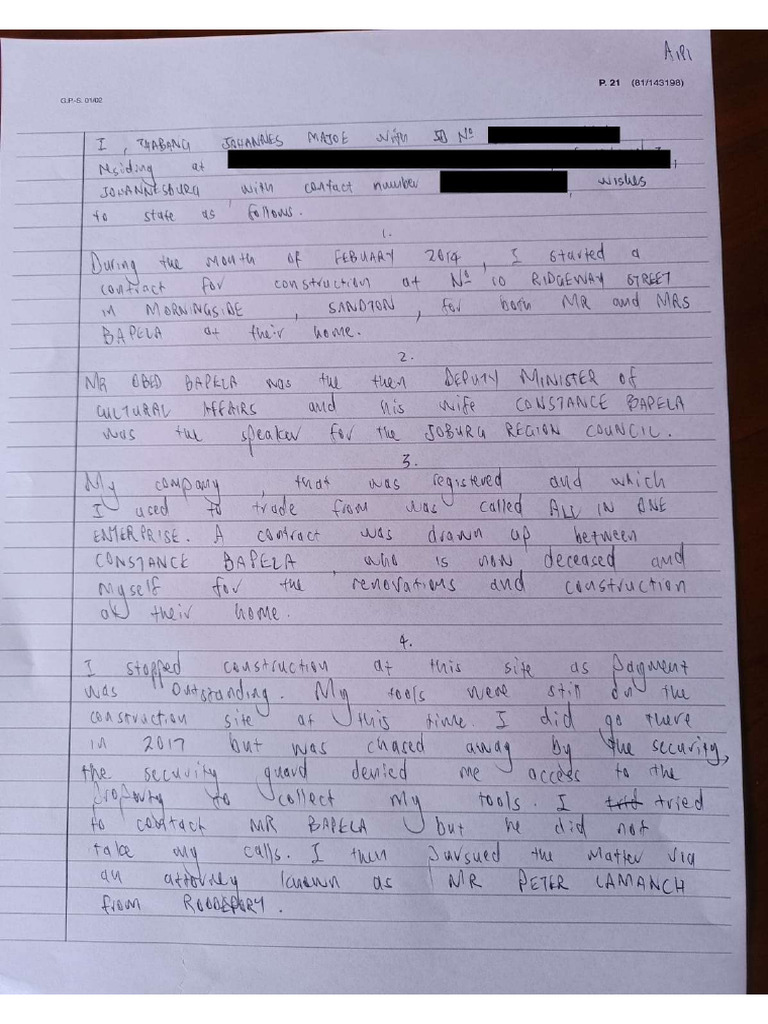 A1P1
P. 21 (81/143198)
G.P.-S. 01/02
I, THABANG JOHANNES MAJOE with ID Nº
Residing at
JOHANNESBURG, with contact number , wishes
to state as follows.
1.
During the month of FEBUARY 2014, I started a
contract for construction at Nº 10 RIDGEWAY STREET
in MORNINGSIDE, SANDTON, for both MR and MRS
BAPELA at their home.
2.
MR OBED BAPELA was the then DEPUTY MINISTER of
CULTURAL AFFAIRS and his wife CONSTANCE BAPELA
was the speaker for the JOBURG REGION COUNCIL.
3.
My company, that was registered and which
I used to trade from was called ALL IN ONE
ENTERPRISE. A contract was drawn up between
CONSTANCE BAPELA, who is now deceased and
myself for the renovations and construction
at their home.
4.
I stopped construction at this site as payment
was outstanding. My tools were still on the
construction site at this time. I did go there
in 2017 but was chased away by the security,
the security guard denied me access to the
property to collect my tools. I tried
to contact MR BAPELA but he did not
take my calls. I then pursued the matter via
an attorney known as MR PETER LAMANCH
from